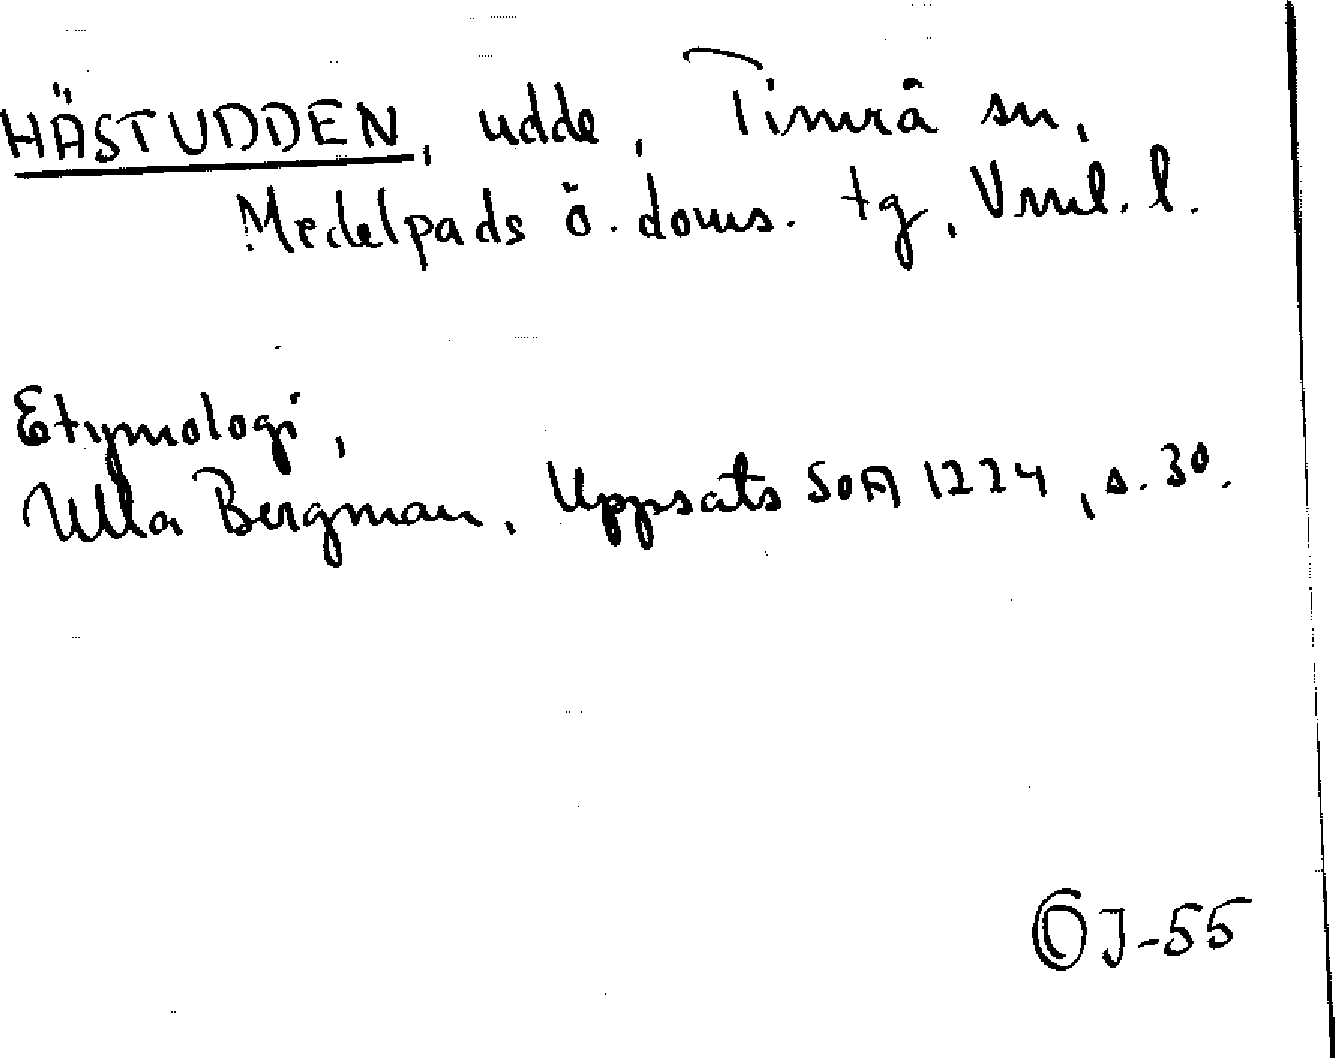 HÄSTUDDEN, udde, Timrå sn,
Medelpads ö. doms. tg, Vnnl. l.
Etymologi,
Ulla Bergman, Uppsats SOA 1224, s. 30.
ÖJ-55